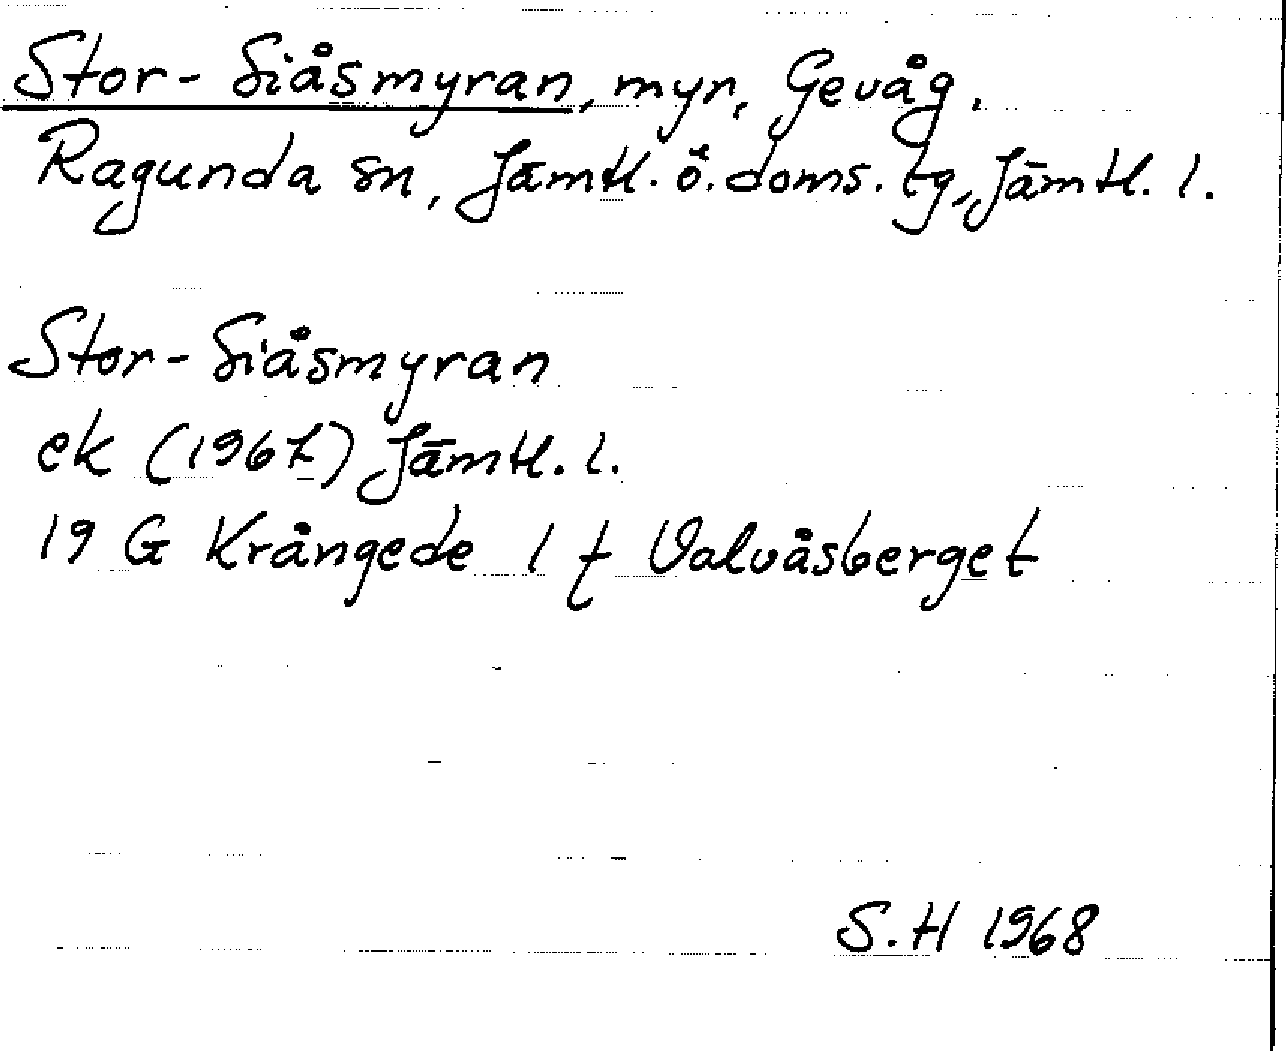 Stor-Siåsmyran, myr, Gevåg.
Ragunda sn, Jämtl. ö. doms. tg, Jämtl. l.
Stor-Siåsmyran
ek (1967) Jämtl. l.
19 G Krångede 1 f Valvåsberget
S.H 1968